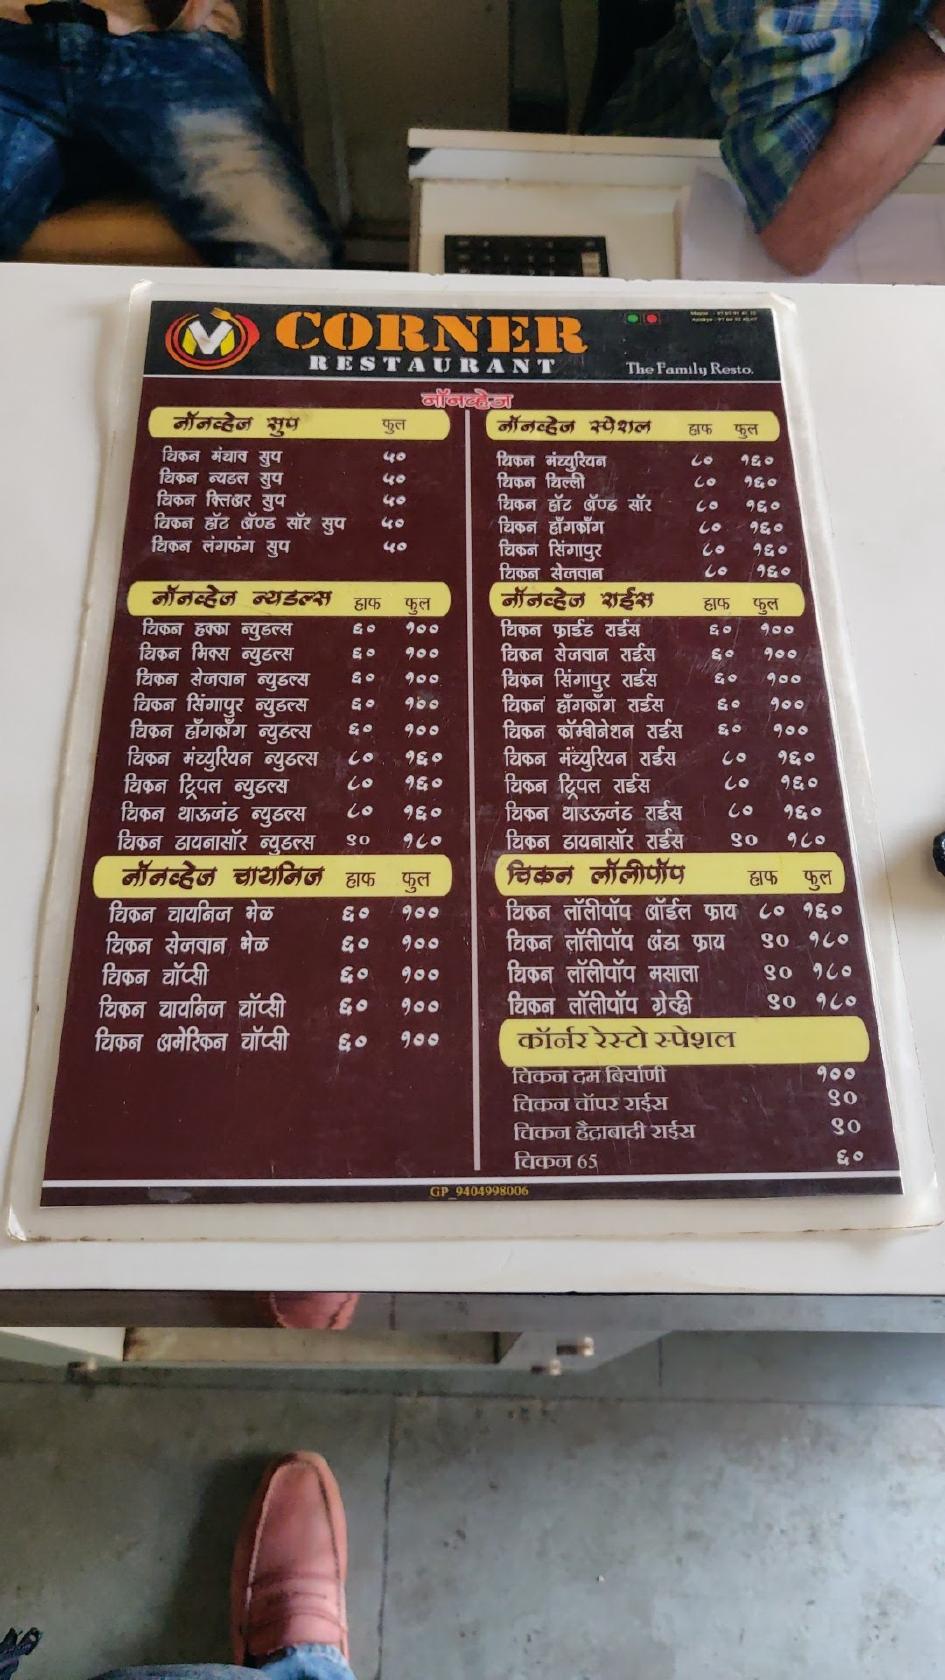 CORNER
RESTAURANT
The Family Resto.
नॉनव्हेज
नॉनव्हेज सुप फुल
चिकन मंचाव सुप ५०
चिकन न्यडल सुप ५०
चिकन क्लिअर सुप ५०
चिकन हॉट ॲण्ड सॉर सुप ५०
चिकन लंगफंग सुप ५०
नॉनव्हेज न्यडल्स हाफ फुल
चिकन हक्का न्युडल्स ६० १००
चिकन मिक्स न्युडल्स ६० १००
चिकन सेजवान न्युडल्स ६० १००
चिकन सिंगापुर न्युडल्स ६० १००
चिकन हाँगकाँग न्युडल्स ६० १००
चिकन मंच्युरियन न्युडल्स ८० १६०
चिकन ट्रिपल न्युडल्स ८० १६०
चिकन थाऊजंड न्युडल्स ८० १६०
चिकन डायनासॉर न्युडल्स ९० १८०
नॉनव्हेज चायनिज हाफ फुल
चिकन चायनिज भेळ ६० १००
चिकन सेजवान भेळ ६० १००
चिकन चॉप्सी ६० १००
चिकन चायनिज चॉप्सी ६० १००
चिकन अमेरिकन चॉप्सी ६० १००
नॉनव्हेज स्पेशल हाफ फुल
चिकन मंच्युरियन ८० १६०
चिकन चिल्ली ८० १६०
चिकन हॉट ॲण्ड सॉर ८० १६०
चिकन हाँगकाँग ८० १६०
चिकन सिंगापुर ८० १६०
चिकन सेजवान ८० १६०
नॉनव्हेज राईस हाफ फुल
चिकन फ्राईड राईस ६० १००
चिकन सेजवान राईस ६० १००
चिकन सिंगापुर राईस ६० १००
चिकन हाँगकाँग राईस ६० १००
चिकन कॉम्बीनेशन राईस ६० १००
चिकन मंच्युरियन राईस ८० १६०
चिकन ट्रिपल राईस ८० १६०
चिकन थाउऊजंड राईस ८० १६०
चिकन डायनासॉर राईस ९० १८०
चिकन लॉलीपॉप हाफ फुल
चिकन लॉलीपॉप ऑईल फ्राय ८० १६०
चिकन लॉलीपॉप अंडा फ्राय ९० १८०
चिकन लॉलीपॉप मसाला ९० १८०
चिकन लॉलीपॉप ग्रेव्ही ९० १८०
कॉर्नर रेस्टो स्पेशल
चिकन दम बिर्याणी १००
चिकन चॉपर राईस ९०
चिकन हैद्राबादी राईस ९०
चिकन 65 ६०
GP_9404998006